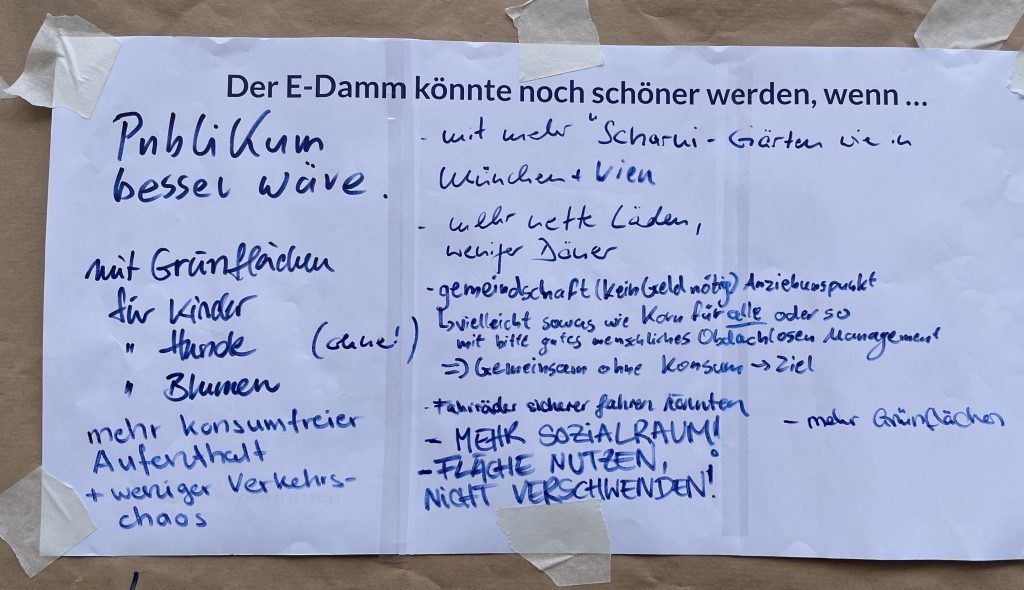 Der E-Damm könnte noch schöner werden, wenn ...
Publikum
besser wäre.
mit Grünflächen
für Kinder
" Hunde (ohne!)
" Blumen
mehr konsumfreier
Aufenthalt
+ weniger Verkehrs-
chaos
- mit mehr "Schani-Gärten wie in
München + Wien
- mehr nette Läden,
weniger Döner
- gemeindschaft (kein Geld nötig) Anziehunspunkt
↳ vielleicht sowas wie Korn für alle oder so
mit bitte gutes menschliches Obdachlosen Management
=> Gemeinsam ohne Konsum → Ziel
- Fahrräder sicherer fahren könnten
- MEHR SOZIALRAUM!
- FLÄCHE NUTZEN,
NICHT VERSCHWENDEN!
- mehr Grünflächen